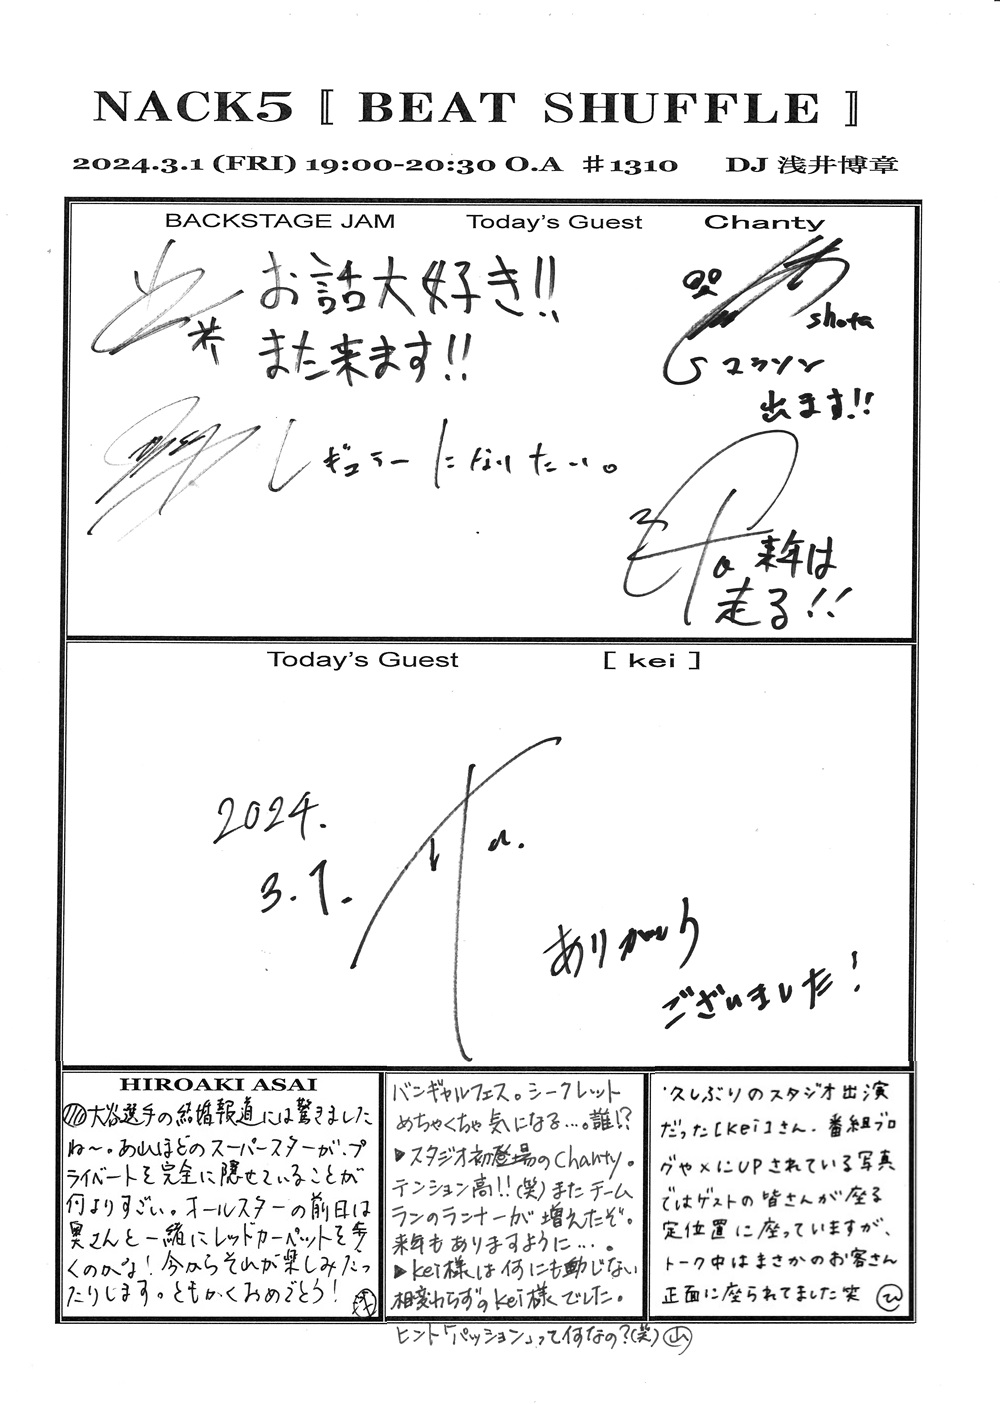 NACK5 〚 BEAT SHUFFLE 〛
2024.3.1 (FRI) 19:00-20:30 O.A ♯1310 DJ 浅井博章
BACKSTAGE JAM Today's Guest Chanty
お話大好き!!
また来ます!!
shota
マラソン
出ます!!
レギュラーになりたい。
来年は
走る!!
Today's Guest [ kei ]
2024.
3.1.
ありがとう
ございました!
HIROAKI ASAI
大谷選手の結婚報道には驚きました
ね〜。あれほどのスーパースターが、プ
ライベートを完全に隠せていることが
何よりすごい。オールスターの前日は
奥さんと一緒にレッドカーペットを歩
くのかな!今からそれが楽しみだっ
たりします。ともかくおめでとう!
バンギャルフェス。シークレット
めちゃくちゃ気になる…。誰!?
▶スタジオ初登場のChanty。
テンション高!!(笑)またチーム
ランのランナーが増えたぞ。
来年もありますように…。
▶kei様は何にも動じない
相変わらずのkei様でした。
ヒント「パッション」って何なの?(笑)㊤
久しぶりのスタジオ出演
だった[kei]さん。番組ブロ
グやXにUPされている写真
ではゲストの皆さんが座る
定位置に座っていますが、
トーク中はまさかのお客さん
正面に座られてました笑 ひ